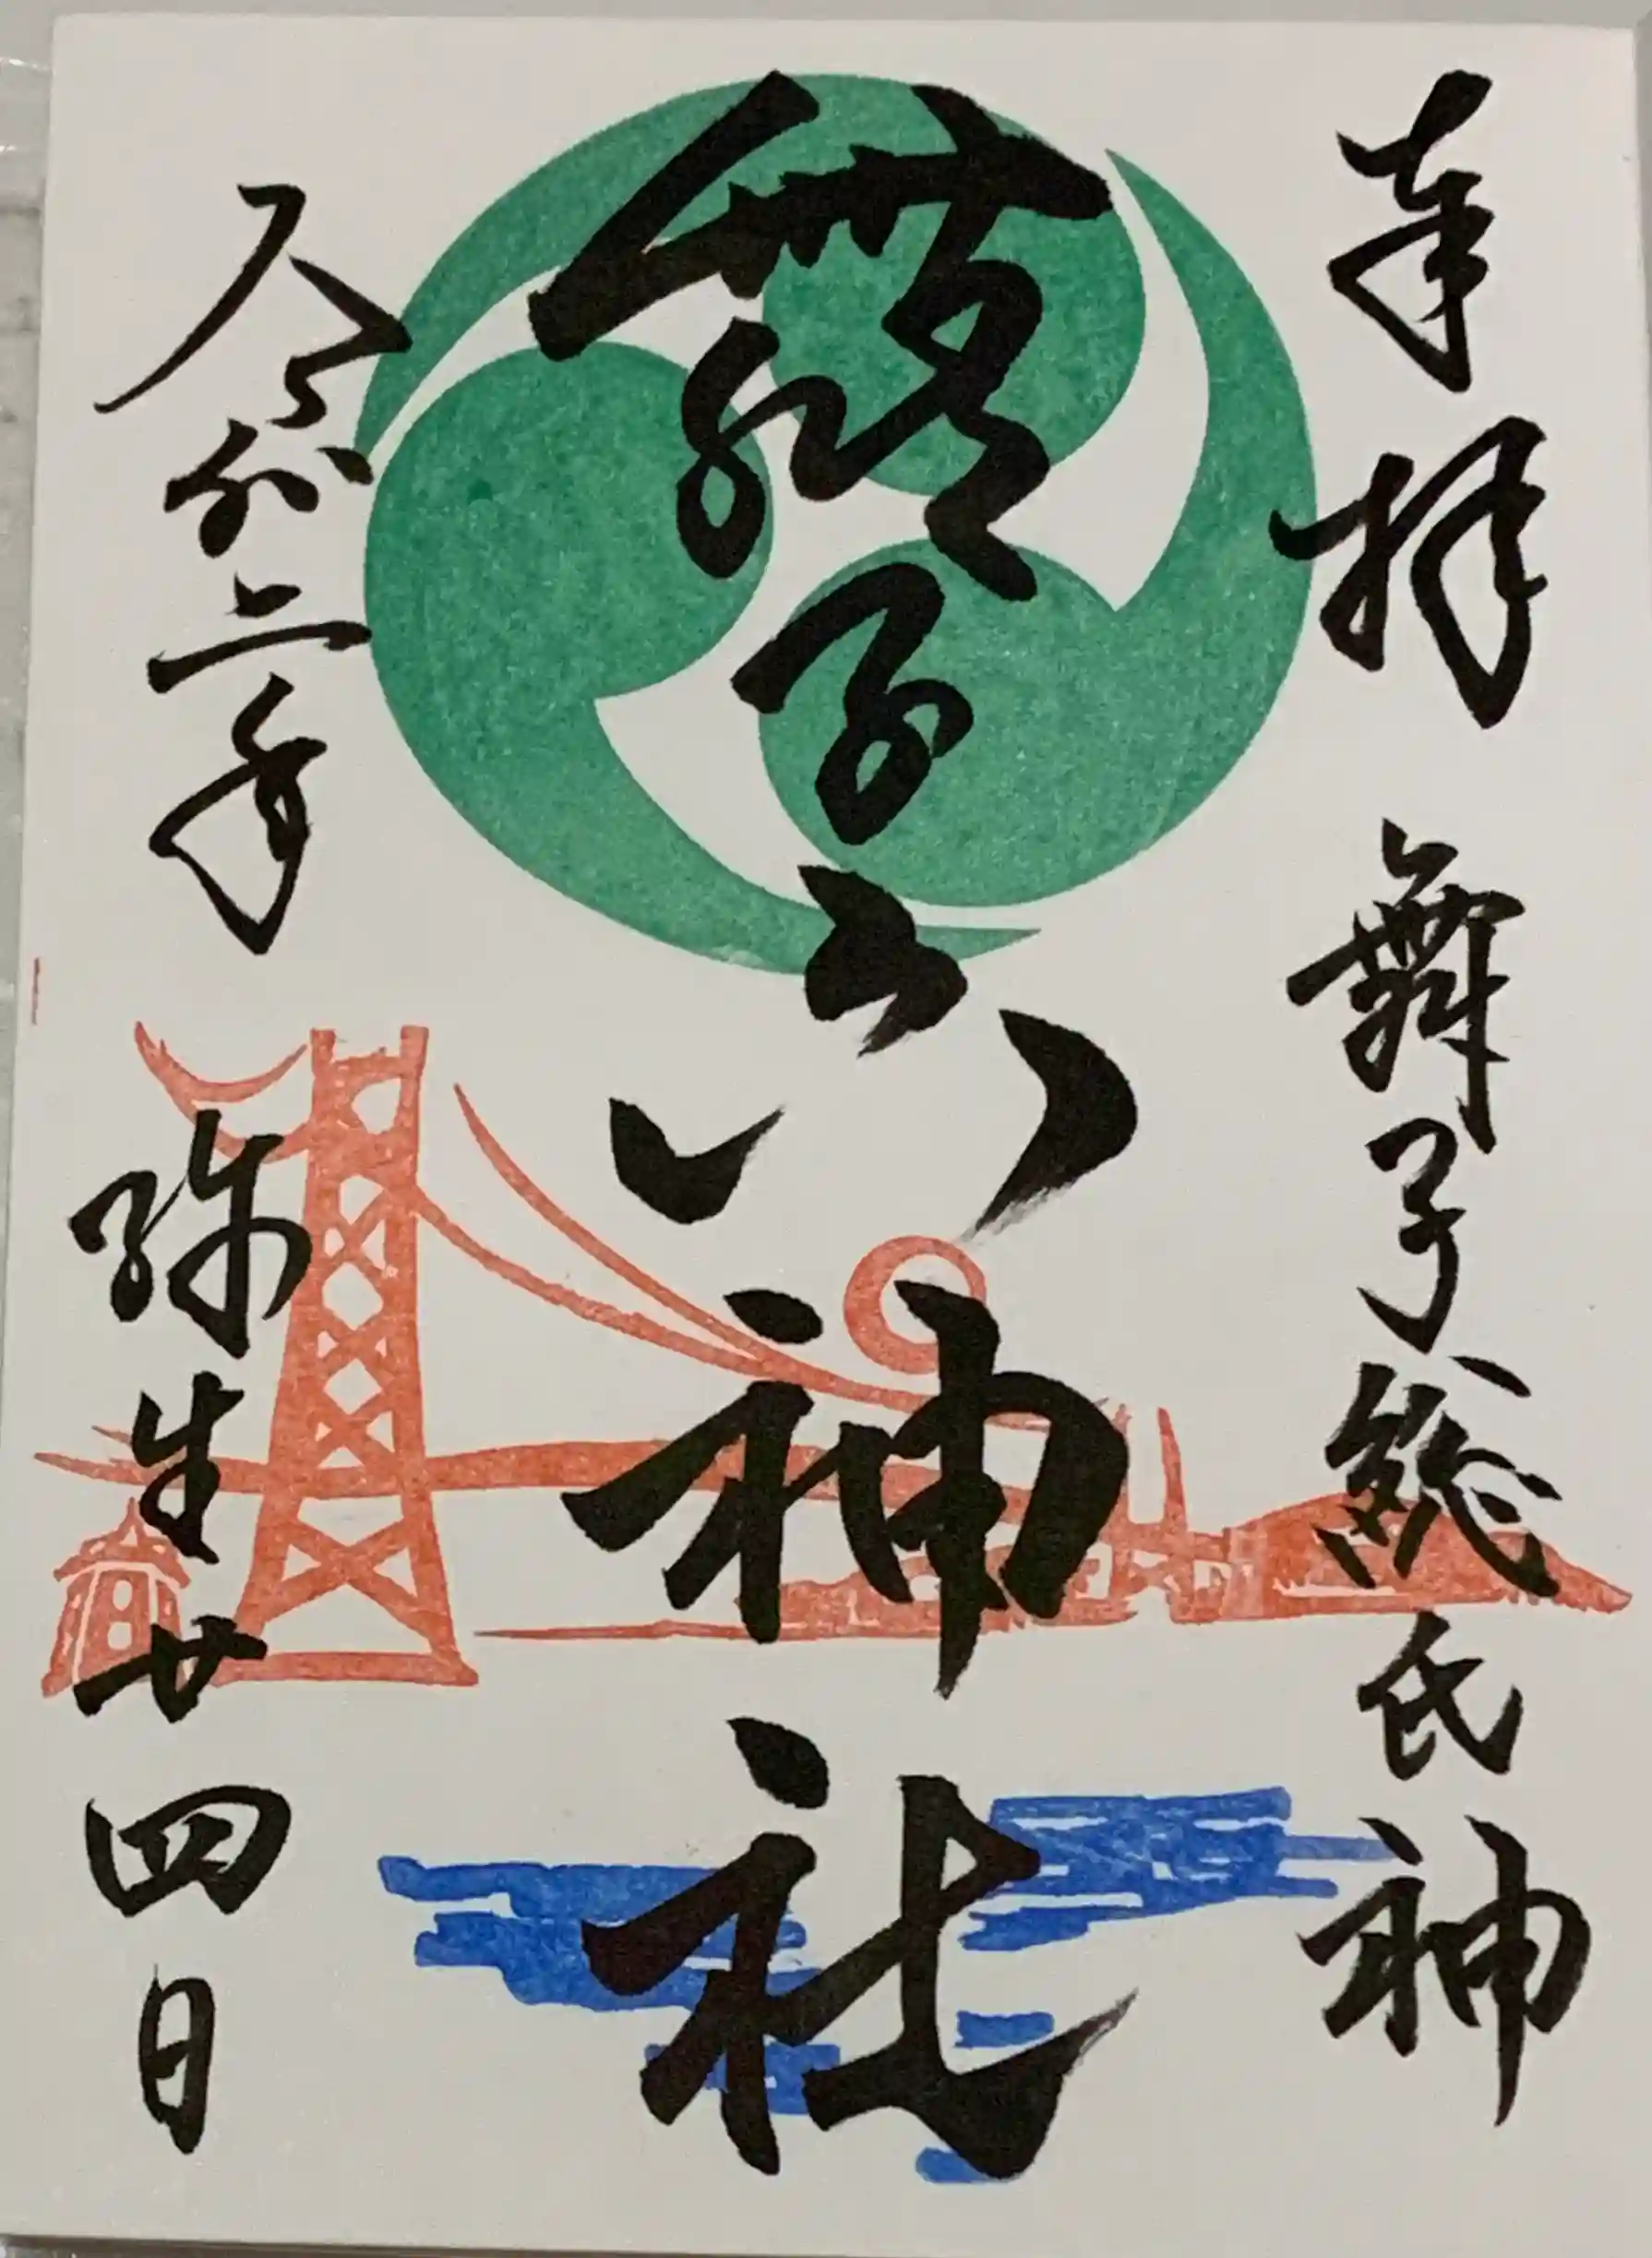 奉拝 舞子総氏神
舞子六神社
令和二年 弥生廿四日